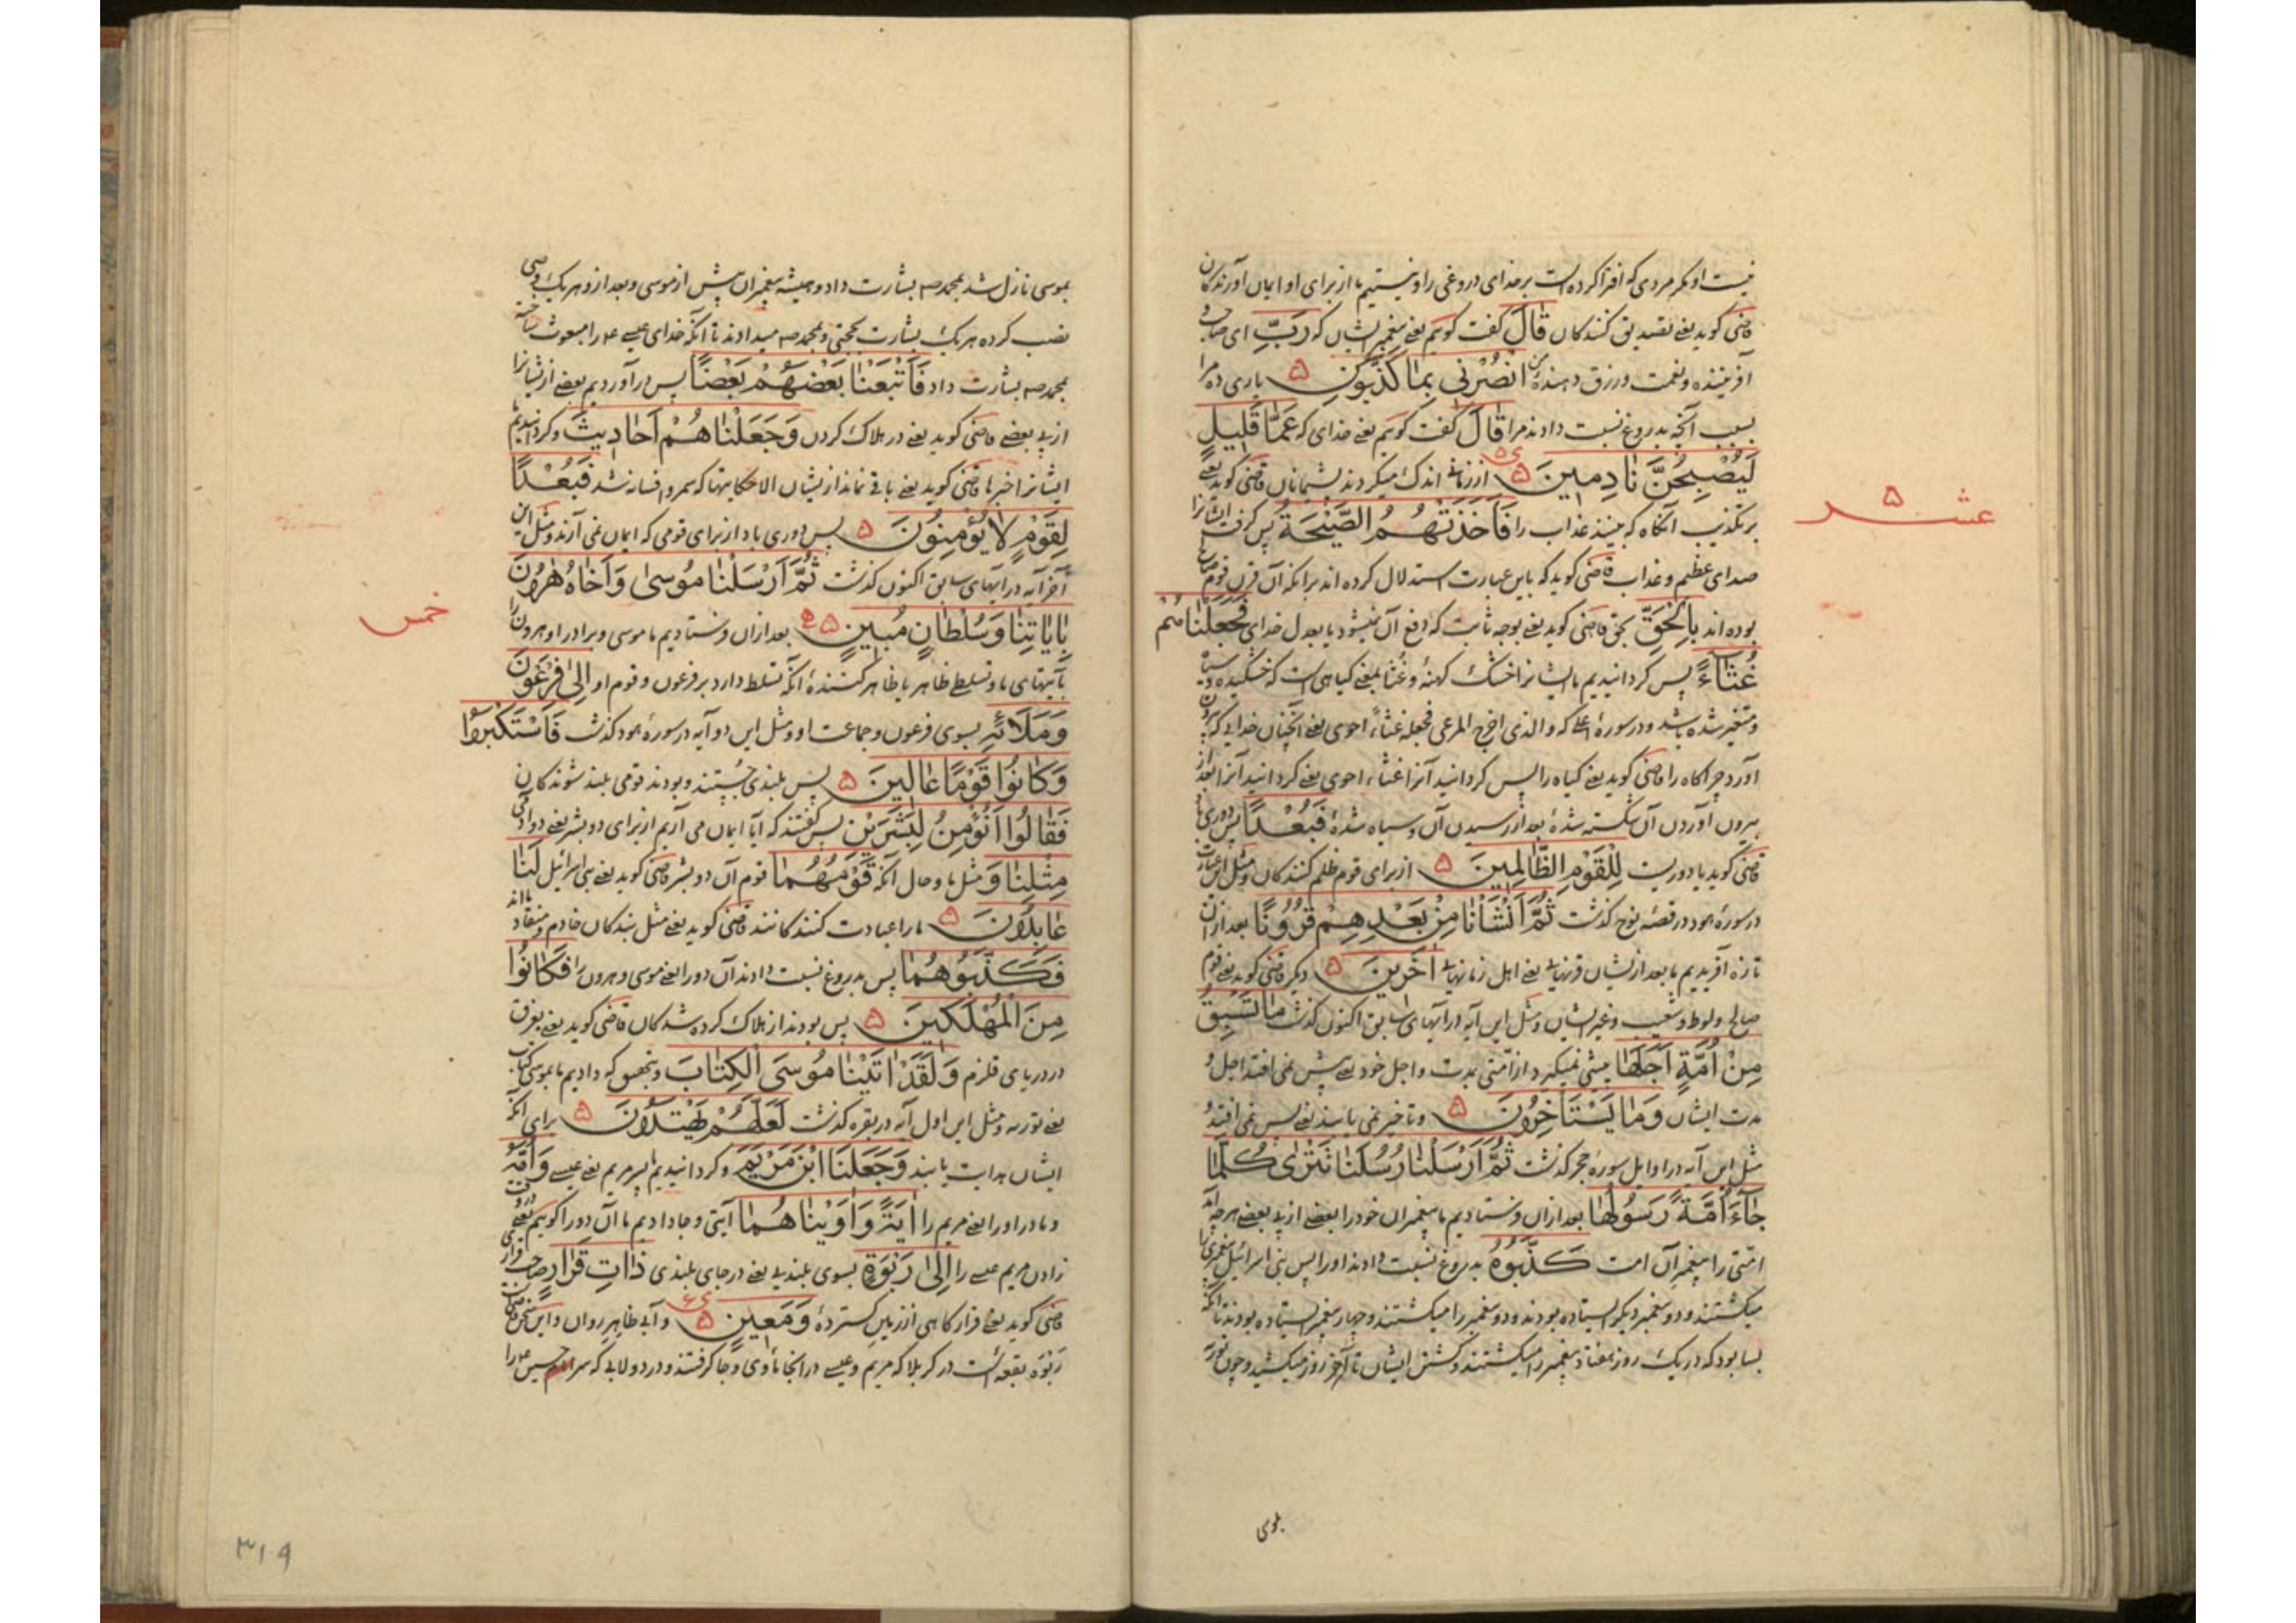 نیست او مکر مردی که افترا کرده است بر خدای دروغی را و نیستیم ما از برای او ایمان آورندکان
قاضی کوید یعنے تصدیق کنندکان قَالَ کفت کویم یعنے پیغمبر ایشان که رَبِّ ای صاحب و
آفریننده و نعمت و رزق دهندهٔ من انْصُرْنِی بِمَا کَذَّبُونِ ۵ یاری ده مرا
بسبب آنچه بدروغ نسبت دادند مرا قَالَ کفت کویم یعنے خدای که عَمَّا قَلِیلٍ
لَیُصْبِحُنَّ نَادِمِینَ ۵ از زمانے اندک میکردند پشیمانان قاضی کوید یعنے
بر تکذیب آنکاه که ببینند عذاب را فَاَخَذَتْهُمُ الصَّیْحَةُ پس کرفت ایشانرا
صدای عظیم و عذاب قاضی کوید که باین عبارت استدلال کرده اند برانکه آن قرن قوم صالح
بوده اند بِالْحَقِّ بحق قاضی کوید یعنے بوجه ثابت که دفع آن نمیشود یا بعدل خدای فَجَعَلْنَاهُمْ
غُثَاءً پس کردانیدیم ما ایشانرا خشک کهنهٔ و غثا بمعنے کیاهی است که خشکیده و سیاه
و متغیر شده باشد و در سورهٔ اعلے که و الذی اخرج المرعی فجعله غثاءً احوی یعنے آنچنان خدایی که بیرون
آورد چراکاه را قاضی کوید یعنے کیاه را پس کردانید آنرا غثاءً احوی یعنے کردانید آنرا بعد از
بیرون آوردن آن شکسته شدهٔ بعد از رسیدن آن و سیاه شدهٔ فَبُعْدًا پس دوری باد
قاضی کوید یا دوریست لِلْقَوْمِ الظَّالِمِینَ ۵ از برای قوم ظلم کنندکان و مثل این عبارت
در سورهٔ هود در قصهٔ نوح کذشت ثُمَّ اَنْشَاْنَا مِنْ بَعْدِهِمْ قُرُونًا بعد ازان
تازه آفریدیم ما بعد از ایشان قرنهایے یعنے اهل زمانهایے اٰخَرِینَ ۵ دیکر قاضی کوید یعنے قوم
صالح و لوط و شعیب و غیر ایشان و مثل این آیه در آیهای سابق اکنون کذشت مَا تَسْبِقُ
مِنْ اُمَّةٍ اَجَلَهَا پیشی نمیکیرد از امّتی مدت و اجل خود یعنے پیش نمی افتد اجل و
مدت ایشان وَمَا یَسْتَاْخِرُونَ ۵ و تاخیر نمی یابند یعنے پس نمی افتند و
مثل این آیه در اوایل سورهٔ حجر کذشت ثُمَّ اَرْسَلْنَا رُسُلَنَا تَتْرٰی کُلَّمَا
جَاءَ اُمَّةً رَسُولُهَا بعد ازان فرستادیم ما پیغمبران خود را بعضے از پے بعضے هر چه آمد
امّتی را پیغمبر آن امت کَذَّبُوهُ بدروغ نسبت دادند او را پس بنی اسرائیل پیغمبری را
میکشتند و دو پیغمبر دیکر ایستاده بودند و دو پیغمبر را میکشتند و چهار پیغمبر ایستاده بودند تا آنکه
بسا بود که در یک روز هفتاد پیغمبر را میکشتند و کشتن ایشان تا آخر روز میکشید و چون توریة
بموسی
عشر ۵
بموسی نازل شد بمحمد صه بشارت داد و همیشه پیغمبران پیش از موسی و بعد ازو هر یک وصی
نصب کرده هر یک بشارت بحجتی و بمحمد صه میدادند تا آنکه خدای عیسے ع را مبعوث ساخته
بمحمد صه بشارت داد فَاَتْبَعْنَا بَعْضَهُمْ بَعْضًا پس درآوردیم بعضے از ایشانرا
از پے بعضے قاضی کوید یعنے در هلاک کردن وَجَعَلْنَاهُمْ اَحَادِیثَ و کردانیدیم
ایشانرا خبرها قاضی کوید یعنے باقے نماند از ایشان الا حکایتها که سمر و افسانه شد فَبُعْدًا
لِقَوْمٍ لَا یُؤْمِنُونَ ۵ پس دوری باد از برای قومی که ایمان نمی آرند و مثل این
آخر آیه در آیهای سابق اکنون کذشت ثُمَّ اَرْسَلْنَا مُوسٰی وَاَخَاهُ هٰرُونَ
بِاٰیَاتِنَا وَسُلْطَانٍ مُبِینٍ ۵ بعد ازان فرستادیم ما موسی و برادر او هرون را
بآیتهای ما و تسلطے ظاهر یا ظاهر کنندهٔ آنکه تسلط دارد بر فرعون و قوم او اِلٰی فِرْعَوْنَ
وَمَلَائِهِ بسوی فرعون و جماعت او و مثل این دو آیه در سورهٔ هود کذشت فَاسْتَکْبَرُوا
وَکَانُوا قَوْمًا عَالِینَ ۵ پس بلندی جستند و بودند قومی بلند شوندکان
فَقَالُوا اَنُؤْمِنُ لِبَشَرَیْنِ پس کفتند که آیا ایمان می آریم از برای دو بشر یعنے دو آدمی
مِثْلِنَا وَ مثل ما و حال آنکه قَوْمُهُمَا قوم آن دو بشر قاضی کوید یعنے بنی اسرائیل لَنَا
عَابِدُونَ ۵ ما را عبادت کنندکانند قاضی کوید یعنے مثل بندکان خادم و منقاد ما اند
فَکَذَّبُوهُمَا پس بدروغ نسبت دادند آن دو را یعنے موسی و هرون را فَکَانُوا
مِنَ الْمُهْلَکِینَ ۵ پس بودند از هلاک کرده شدکان قاضی کوید یعنے بغرق
در دریای قلزم وَلَقَدْ اٰتَیْنَا مُوسَی الْکِتَابَ و بتحقیق که دادیم ما بموسی کتاب
یعنے توریه و مثل این اول آیه در بقره کذشت لَعَلَّهُمْ یَهْتَدُونَ ۵ برای آنکه
ایشان هدایت یابند وَجَعَلْنَا ابْنَ مَرْیَمَ و کردانیدیم ما پسر مریم یعنے عیسے وَاُمَّهُ
و مادر او را یعنے مریم را اٰیَةً وَاٰوَیْنَاهُمَا آیتی و جا دادیم ما آن دو را کویم یعنے
زادن مریم عیسے را اِلٰی رَبْوَةٍ بسوی بلندیے یعنے در جای بلندی ذَاتِ قَرَارٍ صاحب قرار
قاضی کوید یعنے قرارکاهی از زمین کستردهٔ وَمَعِینٍ ۵ و آبے ظاهر روان و این
ربوه بقعه ائست در کربلا که مریم و عیسے در انجا ماوی و جا کرفتند و در دولابے که سر امام حسین ع را
خمس
۳۱۹